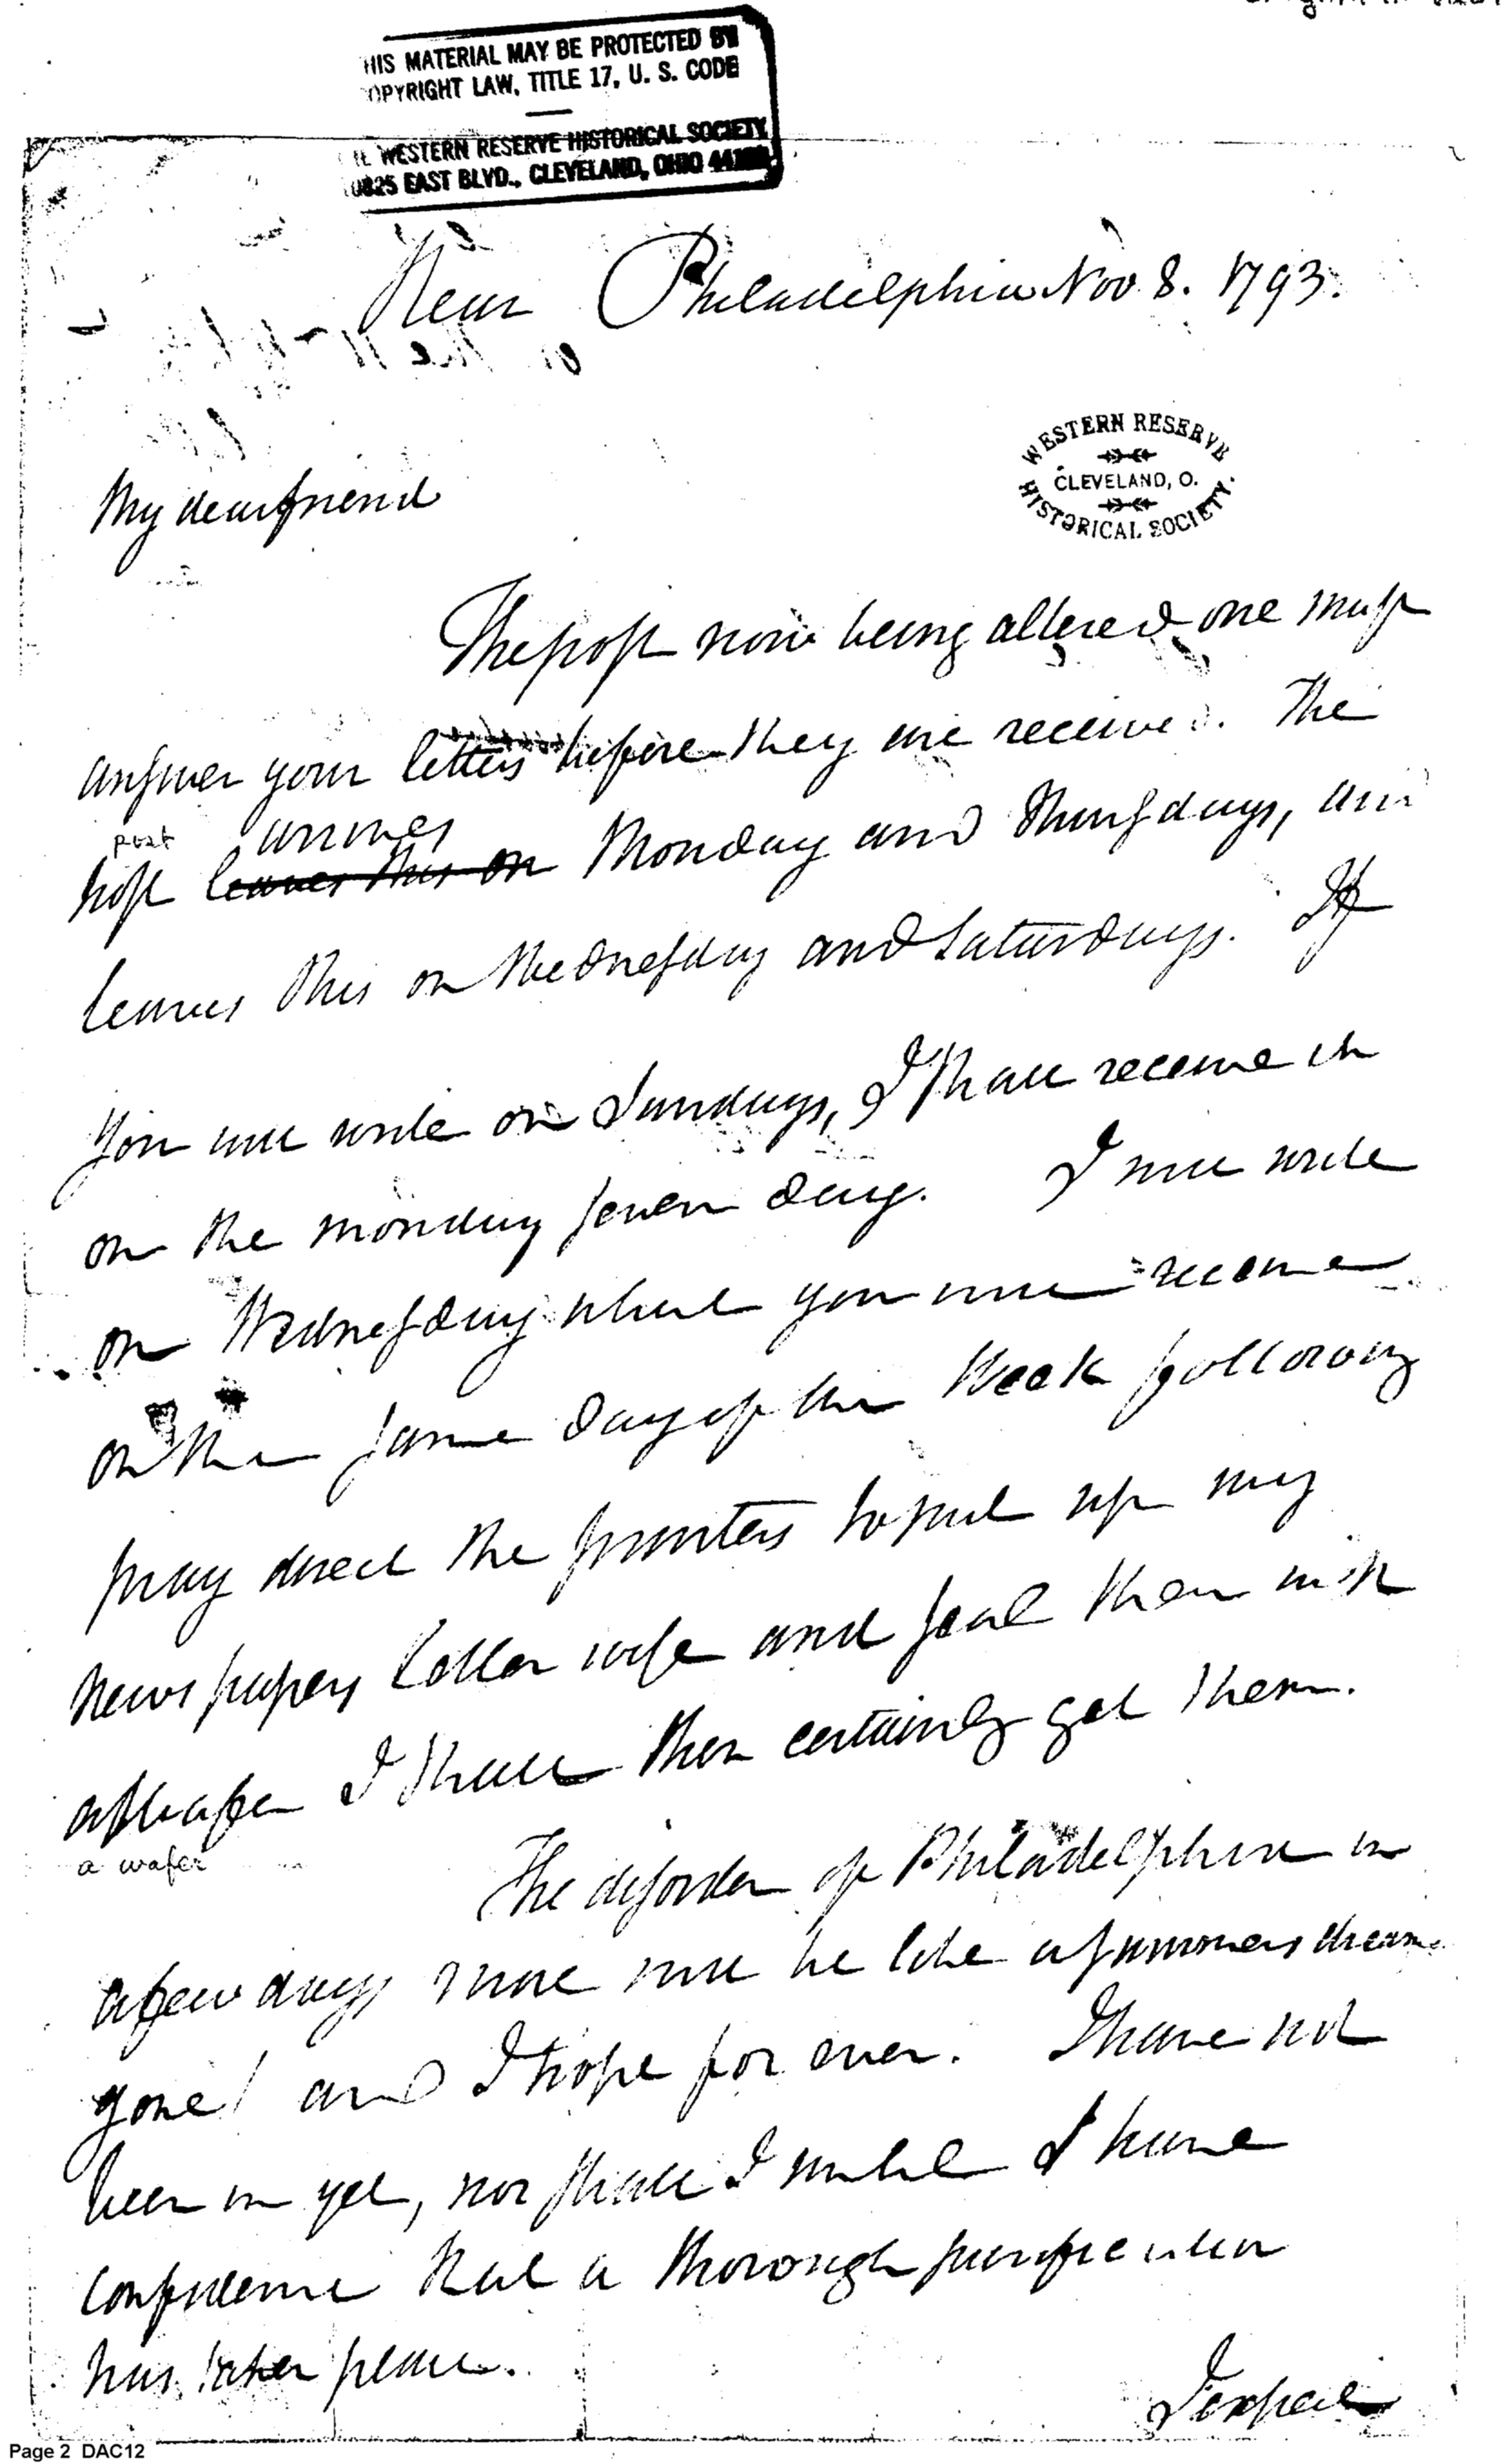 HIS MATERIAL MAY BE PROTECTED BY
OPYRIGHT LAW, TITLE 17, U. S. CODE
WESTERN RESERVE HISTORICAL SOCIETY
0825 EAST BLVD., CLEVELAND, OHIO
Near Philadelphia Nov 8. 1793.
WESTERN RESERVE
CLEVELAND, O.
HISTORICAL SOCIETY.
My dear friend
The post now being altered one must
answer your letters before they are received. The
post arrives
post leaves this on Monday and Thursdays, and
leaves this on Wednesday and Saturdays. If
you will write on Sundays, I shall receive it
on the monday seven day. I will write
on Wednesday which you will receive
on the same day of the Week following
pray direct the printers to put up my
News papers letter wise and seal them with
a wafer I shall then certainly get them.
a wafer
The disorder of Philadelphia in
a few days more will be like a summers dream
gone! and I hope for ever. I have not
been in yet, nor shall I until I have
confidence that a thorough purification
has taken place.
I expect
Page 2 DAC12